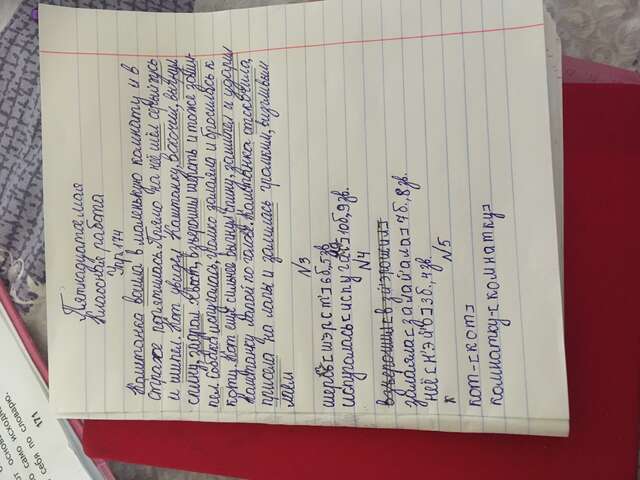 Пятнадцатое мая
Классная работа
Упр. 174
Каштанка вошла в маленькую комнату и в
страхе попятилась. Прямо на неё шёл серый гусь
и шипел. Кот увидел Каштанку, вскочил, выгнул
спину, задрал хвост, взъерошил шерсть и тоже зашипел.
Собака испугалась, громко залаяла и бросилась к
коту. Кот ещё сильнее выгнул спину, зашипел и ударил
Каштанку лапой по голове. Каштанка отскочила,
присела на лапы и залилась громким, визгливым
лаем
N3
шерсть [шэрст'] 6б, 5зв.
испугалась [испуга] 10б, 9зв.
N4
залаяла [залайала] 7б, 8зв.
неё [н'эйо] 3б, 4зв.
N5
кот - [кот]
комнатку - [комнатку]
171
себя по словарю.